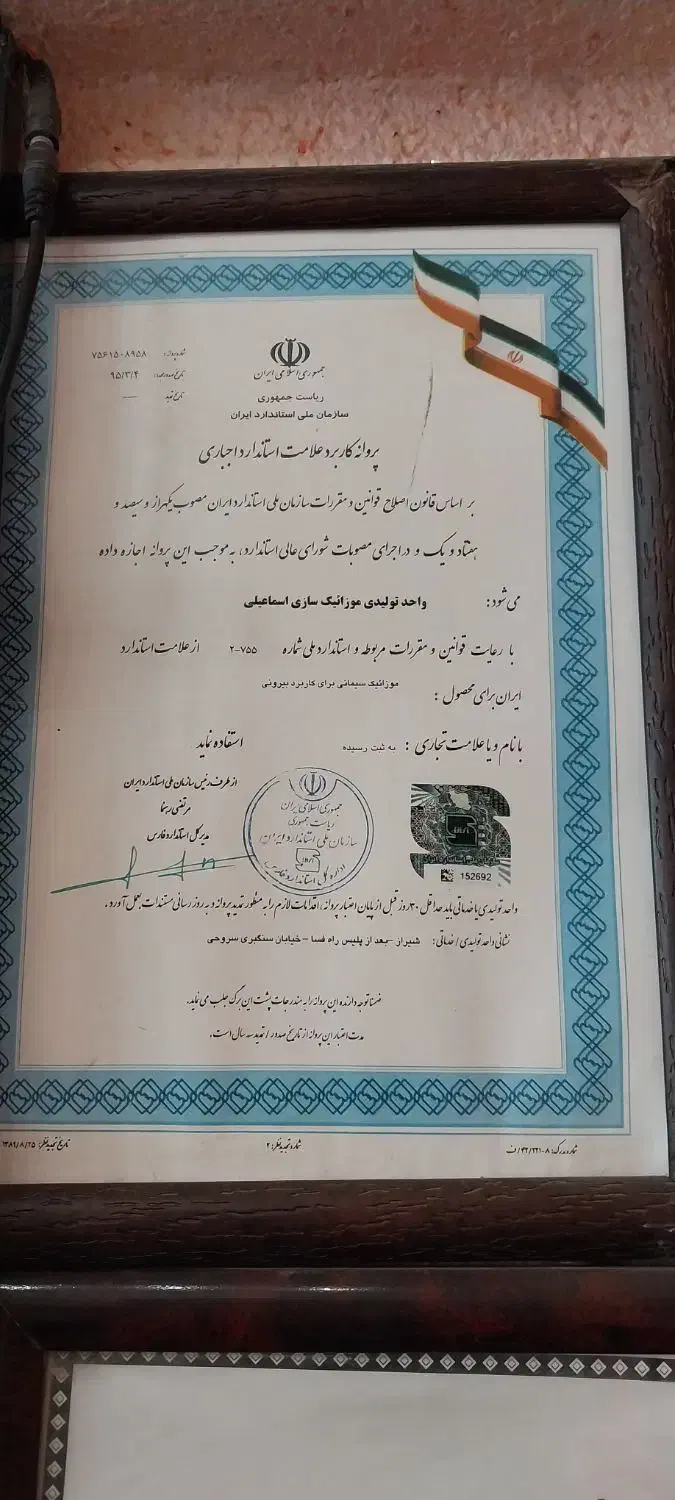 جمهوری اسلامی ایران
ریاست جمهوری
سازمان ملی استاندارد ایران
شماره پروانه: ۷۵۶۱۵۰۸۹۵۸
تاریخ صدور: ۹۵/۳/۴
تاریخ تمدید: —
پروانه کاربرد علامت استاندارد اجباری
بر اساس قانون اصلاح قوانین و مقررات سازمان ملی استاندارد ایران مصوب یکهزار و سیصد و
هفتاد و یک و در اجرای مصوبات شورای عالی استاندارد، به موجب این پروانه اجازه داده
می شود: واحد تولیدی موزائیک سازی اسماعیلی
با رعایت قوانین و مقررات مربوطه و استاندارد ملی شماره ۷۵۵-۲ از علامت استاندارد
ایران برای محصول : موزائیک سیمانی برای کاربرد بیرونی
با نام و یا علامت تجاری : به ثبت رسیده استفاده نماید
از طرف رئیس سازمان ملی استاندارد ایران
مرتضی رهنما
مدیر کل استاندارد فارس
جمهوری اسلامی ایران
ریاست جمهوری
سازمان ملی استاندارد ایران
اداره کل استاندارد فارس
152692
واحد تولیدی یا خدماتی باید حداقل ۳۰ روز قبل از پایان اعتبار پروانه، اقدامات لازم را به منظور تمدید پروانه و به روز رسانی مستندات بعمل آورد.
نشانی واحد تولیدی / خدماتی: شیراز -بعد از پلیس راه فسا - خیابان سنگبری سروحی
ضمناً توجه دارنده این پروانه را به مندرجات پشت این برگ جلب می نماید.
مدت اعتبار این پروانه از تاریخ صدور / تمدید سه سال است.
شماره مدرک: ۴۲/۲۲۱۰۸/ف
شماره تجدید نظر: ۲
تاریخ تجدید نظر: ۱۳۸۹/۸/۲۵